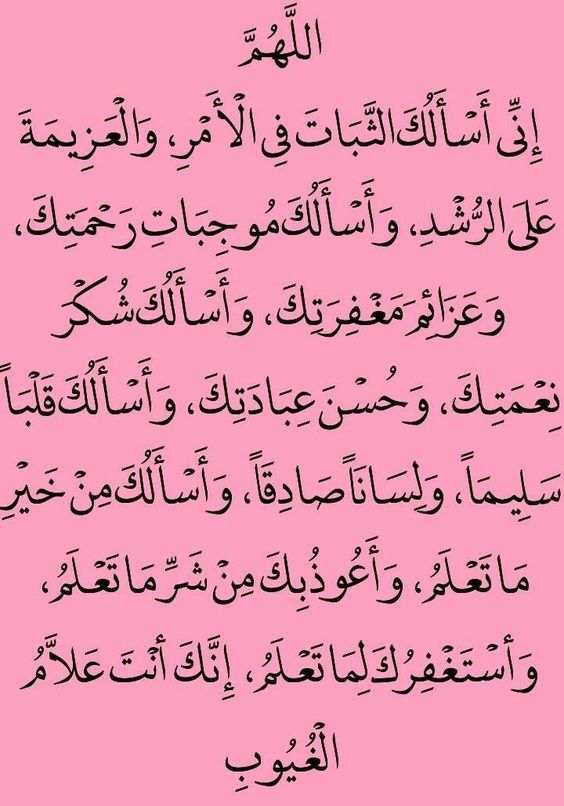 اللَّهُمَّ
إِنِّي أَسْأَلُكَ الثَّبَاتَ فِي الْأَمْرِ، وَالْعَزِيمَةَ
عَلَى الرُّشْدِ، وَأَسْأَلُكَ مُوجِبَاتِ رَحْمَتِكَ،
وَعَزَائِمَ مَغْفِرَتِكَ، وَأَسْأَلُكَ شُكْرَ
نِعْمَتِكَ، وَحُسْنَ عِبَادَتِكَ، وَأَسْأَلُكَ قَلْبَاً
سَلِيمَاً، وَلِسَانَاً صَادِقَاً، وَأَسْأَلُكَ مِنْ خَيْرِ
مَا تَعْلَمُ، وَأَعُوذُ بِكَ مِنْ شَرِّ مَا تَعْلَمُ،
وَأسْتَغْفِرُكَ لِمَا تَعْلَمُ، إِنَّكَ أنْتَ عَلاَّمُ
الْغُيُوبِ